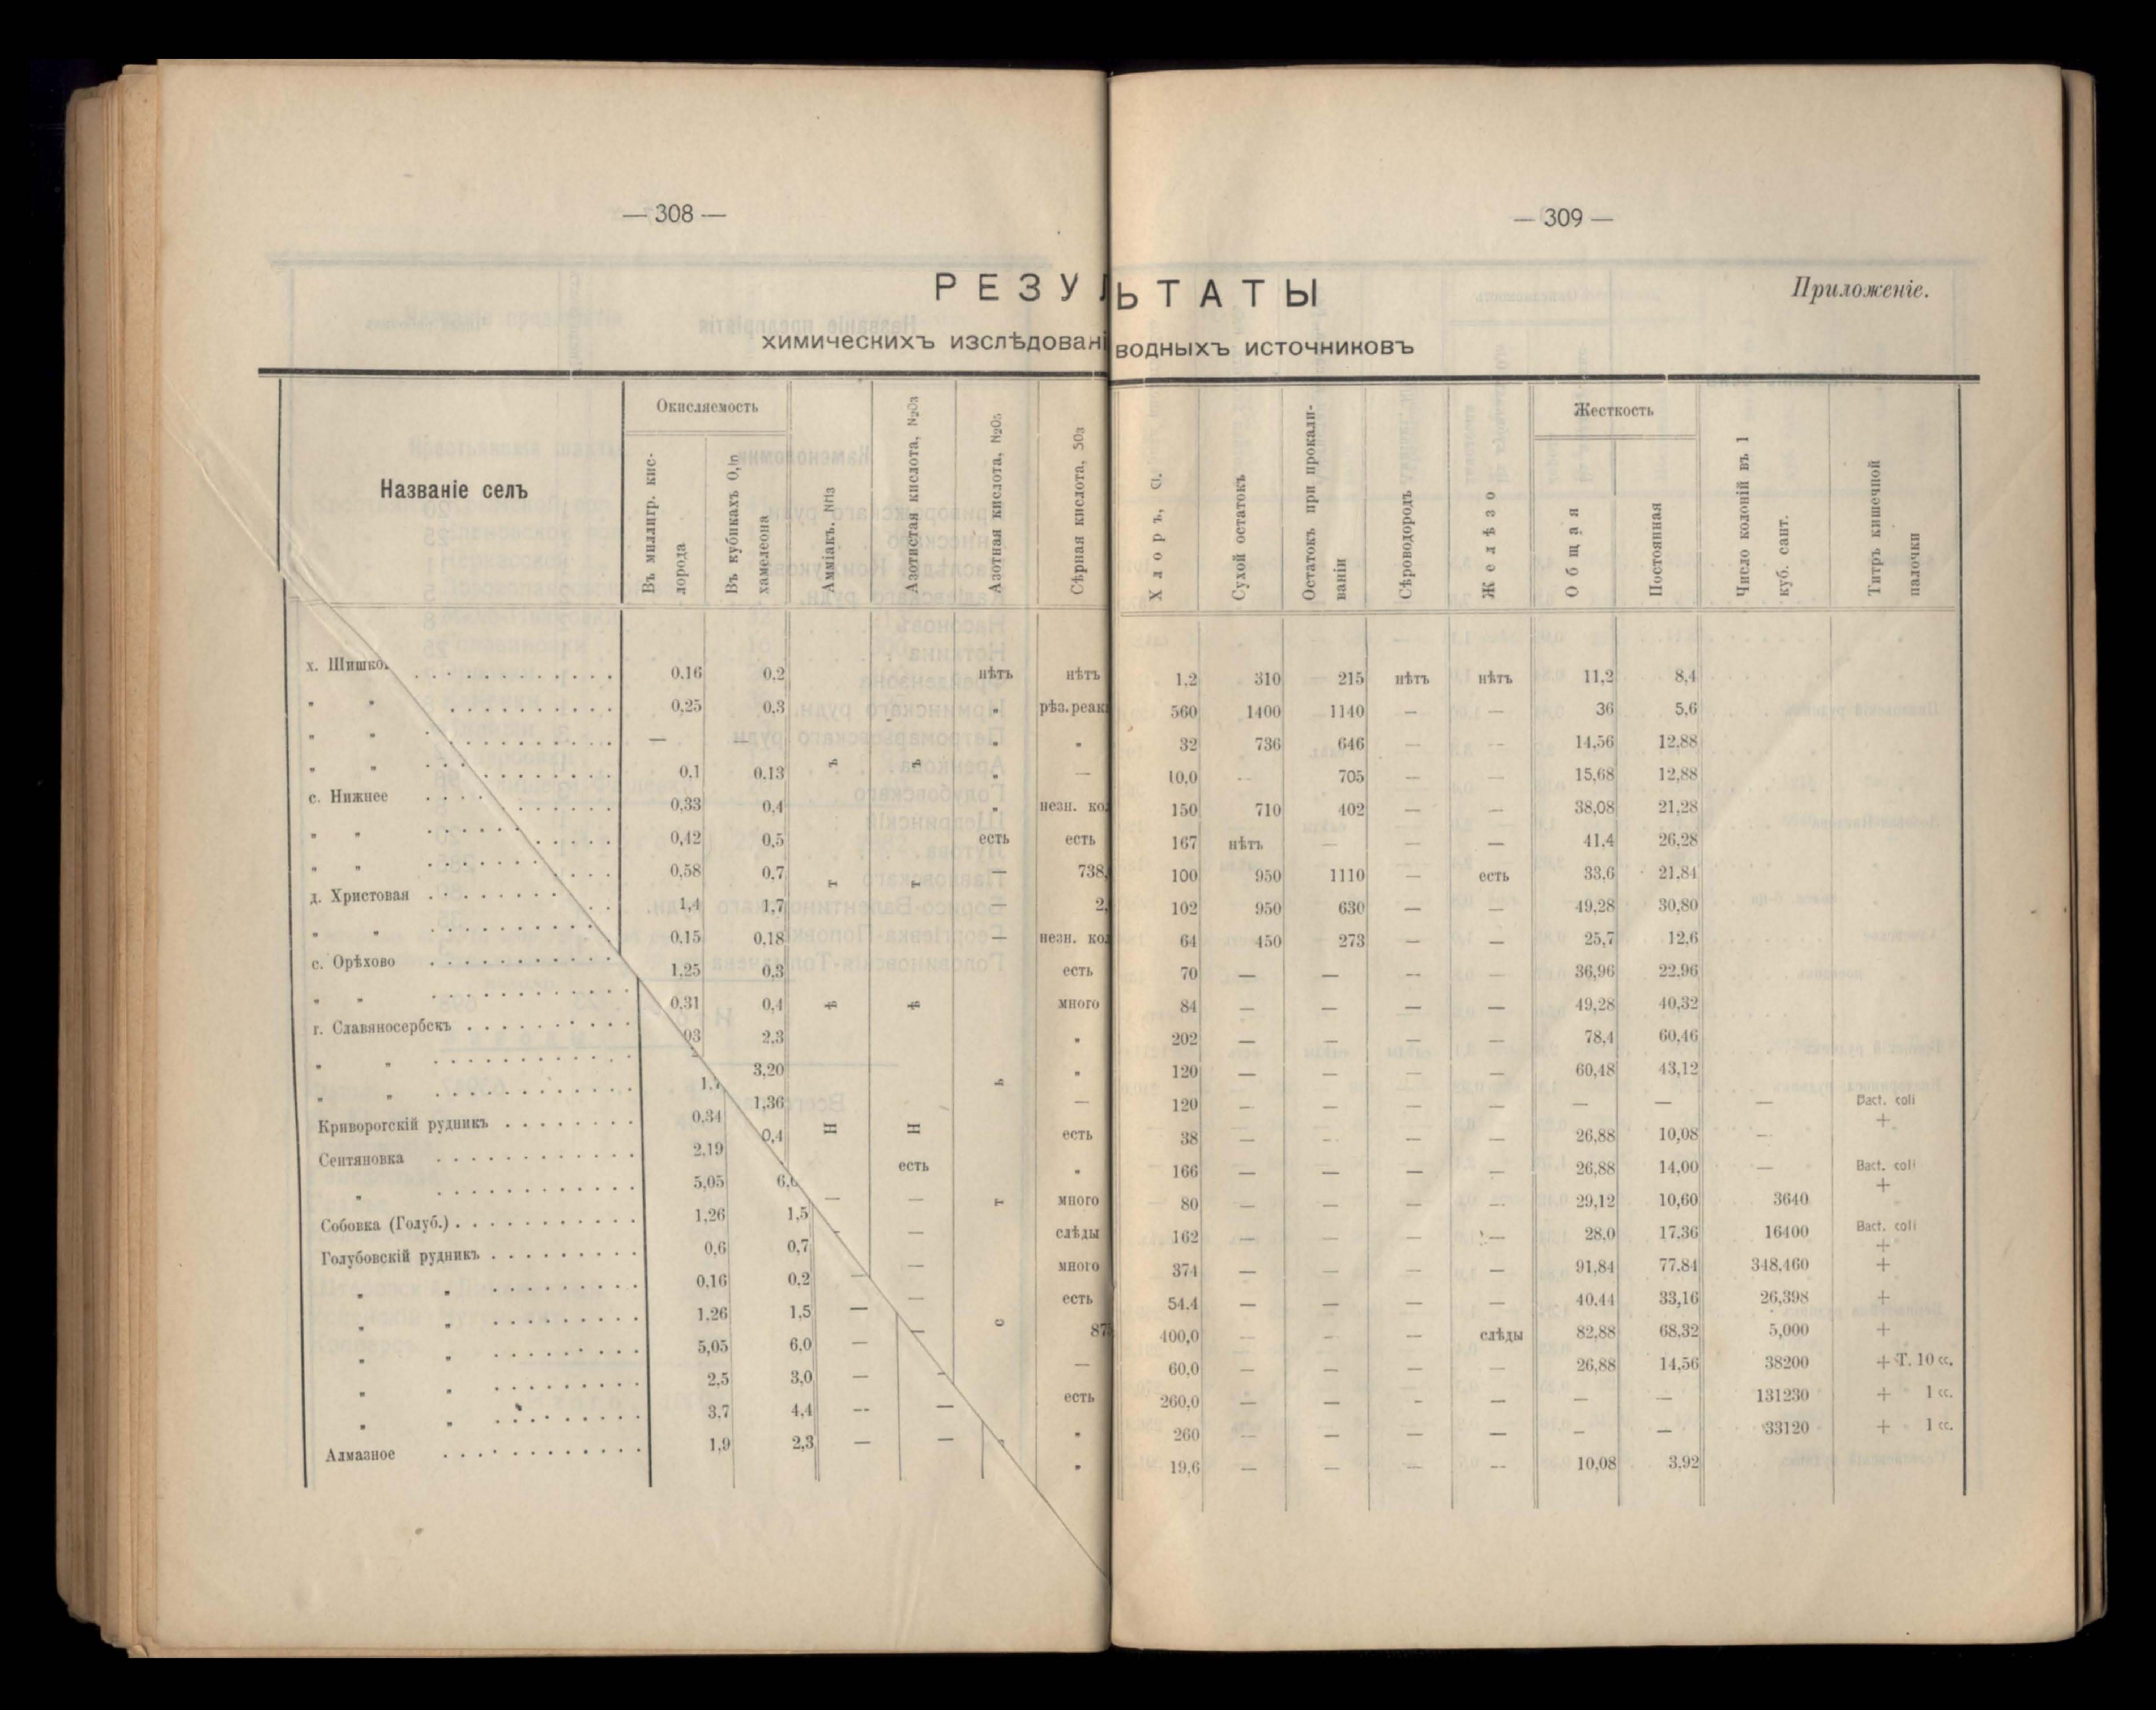 — 308 —
— 309 —
РЕЗУЛЬТАТЫ
Приложеніе.
химическихъ изслѣдовані водныхъ источниковъ
Названіе селъ
Окисляемость
Въ миллигр. кислорода
Въ кубикахъ 0,In хамелеона
Амміакъ. NH3
Азотистая кислота, N2O3
Азотная кислота, N2O5
Сѣрная кислота, SO3
Хлоръ, Cl.
Сухой остатокъ
Остатокъ при прокаливаніи
Сѣроводородъ
Желѣзо
Жесткость
Общая
Постоянная
Число колоній въ 1 куб. сант.
Титръ кишечной палочки
х. Шишко 0.16 0.2 нѣтъ нѣтъ 1,2 310 215 нѣтъ нѣтъ 11,2 8,4
„ „ 0,25 0,3 „ рѣз.реак 560 1400 1140 — — 36 5,6
„ „ — — „ „ 32 736 646 — — 14,56 12,88
„ „ 0,1 0,13 „ — 10,0 — 705 — — 15,68 12,88
с. Нижнее 0,33 0,4 „ незн. ко 150 710 402 — — 38,08 21,28
„ „ 0,42 0,5 есть есть 167 нѣтъ — — — 41,4 26,28
„ „ 0,58 0,7 — 738, 100 950 1110 — есть 33,6 21,84
д. Христовая 1,4 1,7 — 2, 102 950 630 — — 49,28 30,80
„ „ 0,15 0,18 — незн. ко 64 450 273 — — 25,7 12,6
с. Орѣхово 1,25 0,3 есть 70 — — — — 36,96 22,96
„ „ 0,31 0,4 много 84 — — — — 49,28 40,32
г. Славяносербскъ 93 2,3 „ 202 — — — — 78,4 60,46
„ „ 3,20 „ 120 — — — — 60,48 43,12
„ „ 1,7 1,36 — 120 — — — — — — — Bact. coli +
Криворогскій рудникъ 0,34 0,4 есть 38 — — — — 26,88 10,08 —
Сентяновка 2,19 есть „ 166 — — — — 26,88 14,00 — Bact. coli +
„ 5,05 6,0 — — много 80 — — — — 29,12 10,60 3640
Собовка (Голуб.) 1,26 1,5 — — слѣды 162 — — — — 28,0 17,36 16400 Bact. coli +
Голубовскій рудникъ 0,6 0,7 — много 374 — — — — 91,84 77,84 348,460 +
„ „ 0,16 0,2 — — есть 54,4 — — — — 40,44 33,16 26,398 +
„ „ 1,26 1,5 — — 87 400,0 — — — слѣды 82,88 68,32 5,000 +
„ „ 5,05 6,0 — — 60,0 — — — — 26,88 14,56 38200 + Т. 10 cc.
„ „ 2,5 3,0 — — есть 260,0 — — — — — — 131230 + „ 1 cc.
„ „ 3,7 4,4 — — „ 260 — — — — — — 33120 + 1 cc.
Алмазное 1,9 2,3 — — „ 19,6 — — — — 10,08 3,92